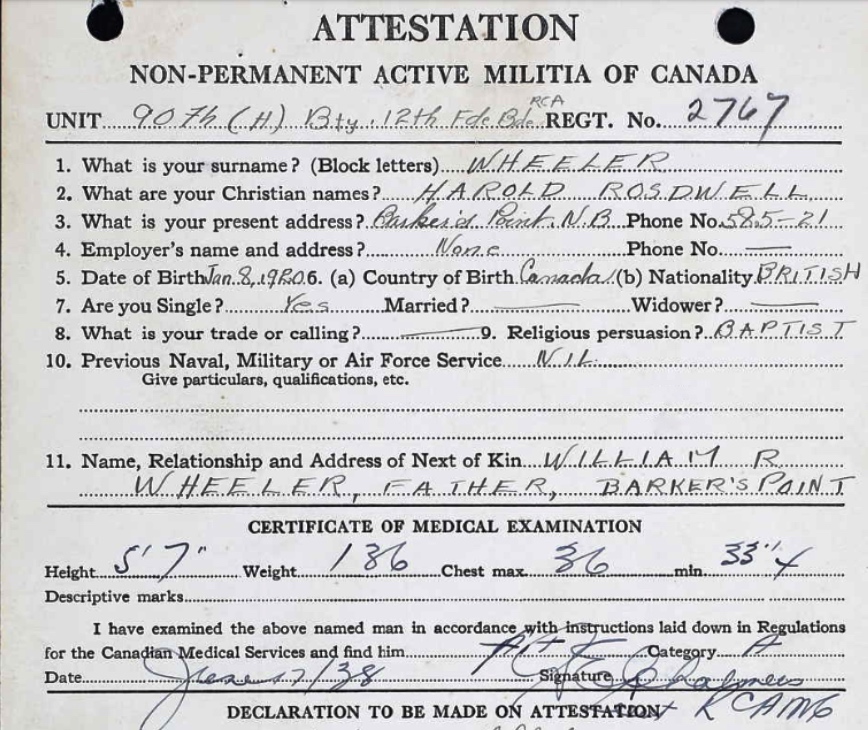 ATTESTATION
NON-PERMANENT ACTIVE MILITIA OF CANADA
RCA
UNIT 90th (H) Bty. 12th Fde Bde REGT. No. 2767
1. What is your surname? (Block letters) WHEELER
2. What are your Christian names? HAROLD ROSDWELL
3. What is your present address? Barker's Point, N.B Phone No. 585-21
4. Employer's name and address? None Phone No. —
5. Date of Birth Jan. 8, 1920 6. (a) Country of Birth Canada (b) Nationality BRITISH
7. Are you Single? Yes Married? — Widower? —
8. What is your trade or calling? — 9. Religious persuasion? BAPTIST
10. Previous Naval, Military or Air Force Service NIL
Give particulars, qualifications, etc.
11. Name, Relationship and Address of Next of Kin WILLIAM R
WHEELER, FATHER, BARKER'S POINT
CERTIFICATE OF MEDICAL EXAMINATION
Height 5'7" Weight 136 Chest max. 36 min. 33"
Descriptive marks
I have examined the above named man in accordance with instructions laid down in Regulations
for the Canadian Medical Services and find him Category A
Date June 17/38 Signature Chalmers
DECLARATION TO BE MADE ON ATTESTATION RCAMC